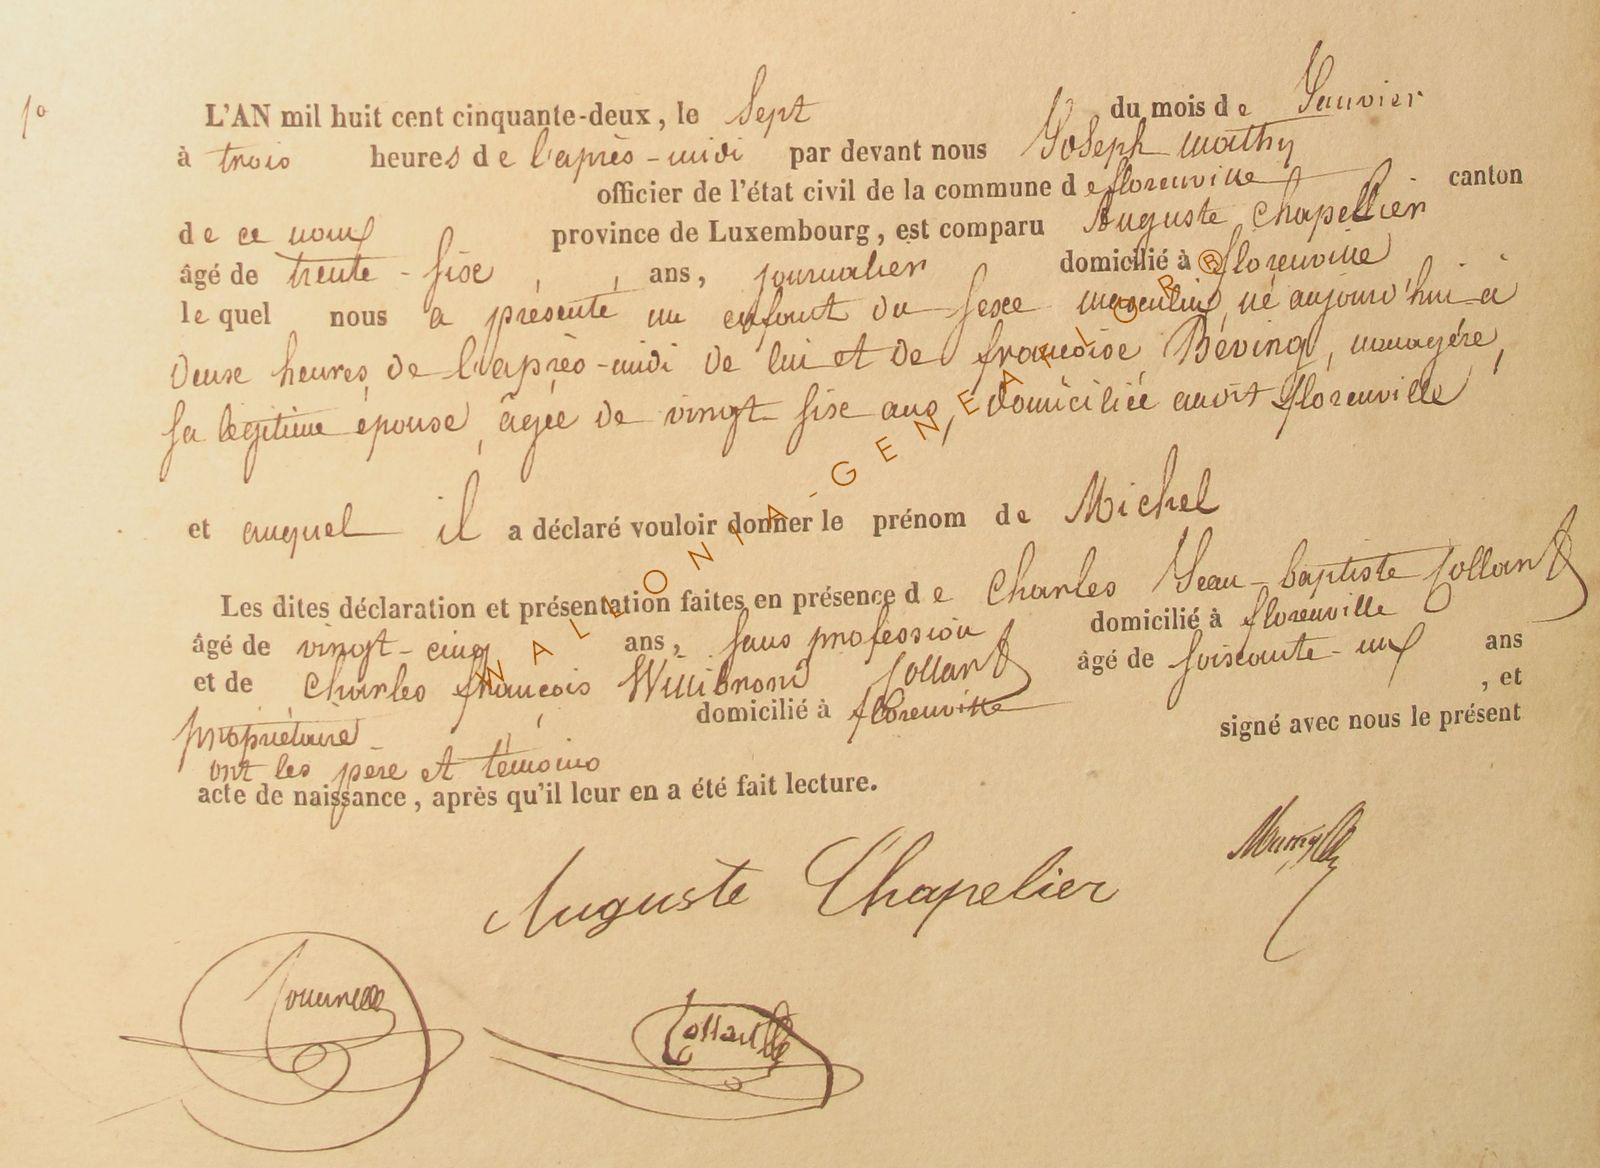 1º
L'AN mil huit cent cinquante-deux, le Sept du mois de Janvier
à trois heures de l'après-midi par devant nous Joseph Mathy
officier de l'état civil de la commune de florenville canton
de ce nom province de Luxembourg, est comparu Auguste Chapellier
âgé de trente-six ans, journalier domicilié à florenville
lequel nous a présenté un enfant du sexe masculin, né aujourd'hui à
deux heures de l'après-midi de lui et de françoise Béving,ménagère,
sa légitime épouse, âgée de vingt six ans, domiciliée audit florenville
et auquel il a déclaré vouloir donner le prénom de Michel
Les dites déclaration et présentation faites en présence de Charles Jean-baptiste
âgé de vingt-cinq ans, sans profession domicilié à florenville
et de Charles françois Willibrord âgé de soixante-un ans
propriétaire domicilié à florenville , et
ont les père et témoins signé avec nous le présent
acte de naissance, après qu'il leur en a été fait lecture.
Auguste Chapelier
WALLONIA-GENEALOGIE